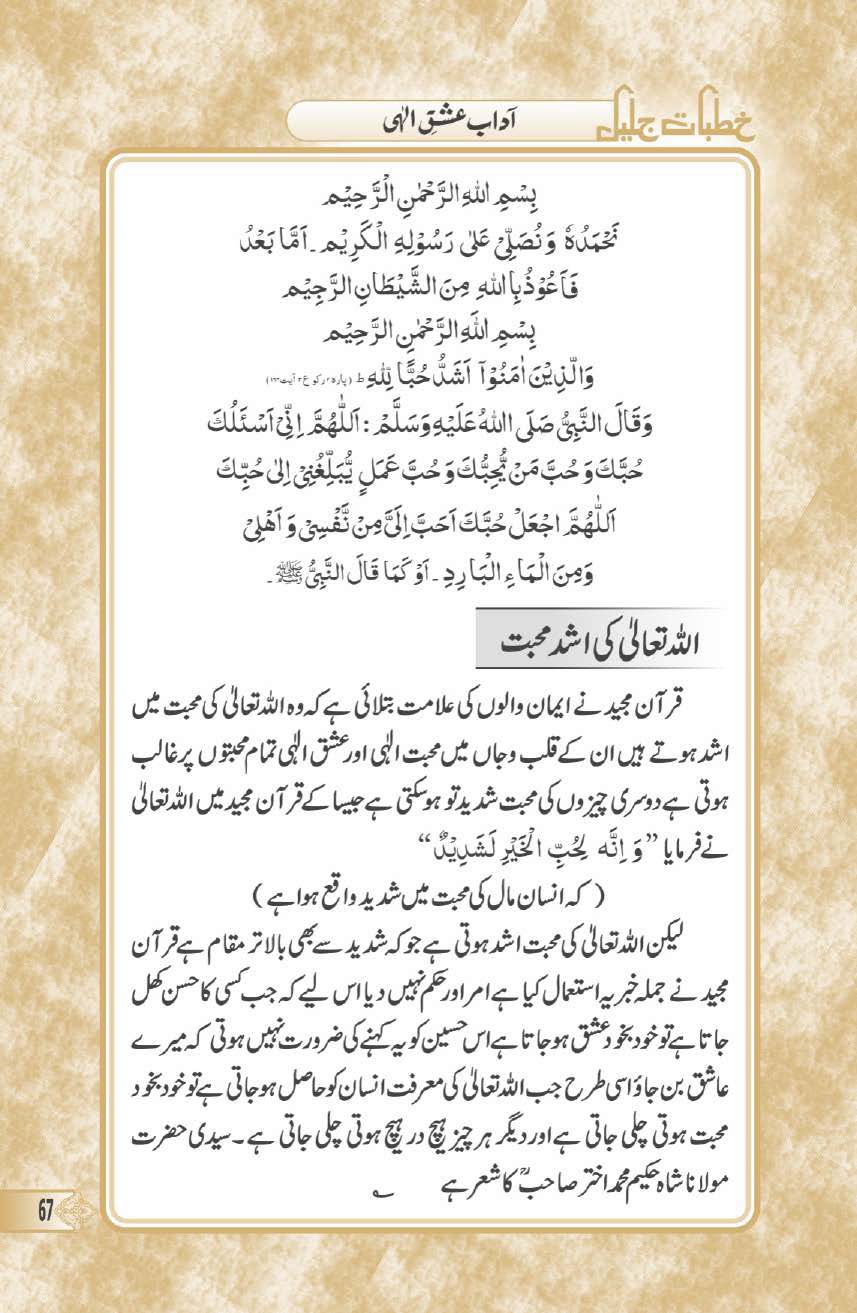 خطبات جلیل
آداب عشقِ الٰہی
بِسْمِ اللهِ الرَّحْمٰنِ الْرَّحِيْم
نَحْمَدُهٗ وَنُصَلِّیْ عَلٰی رَسُوْلِهِ الْكَرِيْم۔ اَمَّا بَعْدُ
فَاَعُوْذُ بِاللهِ مِنَ الشَّيْطَانِ الرَّجِيْم
بِسْمِ اللهِ الرَّحْمٰنِ الرَّحِيْم
وَالَّذِيْنَ اٰمَنُوْآ اَشَدُّ حُبًّا لِلّٰهِ ط (پارہ ۲ رکوع ۴ آیت ۱۶۶)
وَقَالَ النَّبِیُّ صَلَی اللهُ عَلَيْهِ وَسَلَّمْ: اَللّٰهُمَّ اِنِّیْ اَسْئَلُكَ
حُبَّكَ وَحُبَّ مَنْ يُّحِبُّكَ وَحُبَّ عَمَلٍ يُّبَلِّغُنِیْ اِلٰی حُبِّكَ
اَللّٰهُمَّ اجْعَلْ حُبَّكَ اَحَبَّ اِلَیَّ مِنْ نَّفْسِیْ وَ اَهْلِیْ
وَمِنَ الْمَاءِ الْبَارِدِ۔ اَوْ كَمَا قَالَ النَّبِیُّ ﷺ۔
اللہ تعالیٰ کی اشد محبت
قرآن مجید نے ایمان والوں کی علامت بتلائی ہے کہ وہ اللہ تعالیٰ کی محبت میں
اشد ہوتے ہیں ان کے قلب وجاں میں محبت الٰہی اور عشق الٰہی تمام محبتوں پر غالب
ہوتی ہے دوسری چیزوں کی محبت شدید تو ہوسکتی ہے جیسا کے قرآن مجید میں اللہ تعالیٰ
نے فرمایا ”وَ اِنَّه لِحُبِّ الْخَيْرِ لَشَدِيْدٌ“
( کہ انسان مال کی محبت میں شدید واقع ہوا ہے )
لیکن اللہ تعالیٰ کی محبت اشد ہوتی ہے جو کہ شدید سے بھی بالاتر مقام ہے قرآن
مجید نے جملہ خبریہ استعمال کیا ہے امر اور حکم نہیں دیا اس لیے کہ جب کسی کا حسن کھل
جاتا ہے تو خود بخود عشق ہوجاتا ہے اس حسین کو یہ کہنے کی ضرورت نہیں ہوتی کہ میرے
عاشق بن جاؤ اسی طرح جب اللہ تعالیٰ کی معرفت انسان کو حاصل ہوجاتی ہے تو خود بخود
محبت ہوتی چلی جاتی ہے اور دیگر ہر چیز ہیچ در ہیچ ہوتی چلی جاتی ہے۔ سیدی حضرت
مولانا شاہ حکیم محمد اختر صاحبؒ کا شعر ہے ؎
67